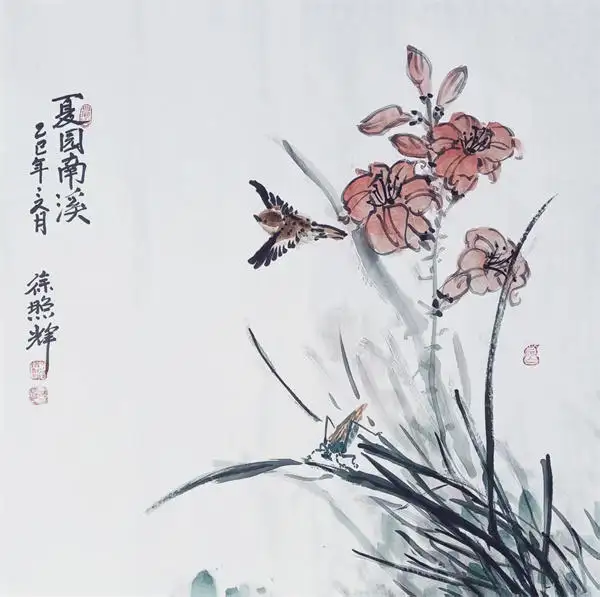 夏园南溪
乙巳年月
徐照辉